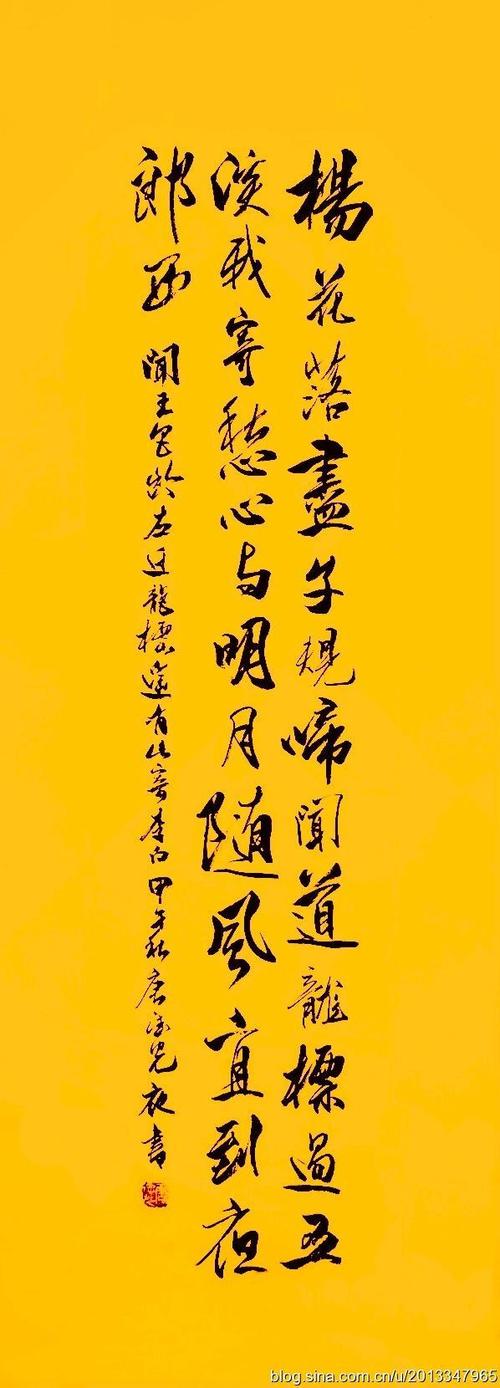 楊花落盡子規啼聞道龍標過五
溪我寄愁心与明月随風直到夜
郎西
聞王昌齡左迁龍標遥有此寄李白甲午秋夜書
blog.sina.com.cn/u/2013347965